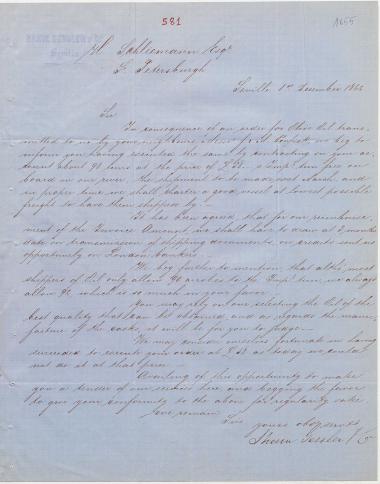 581
1655
Sevilla
H. Schliemann Esqr
St. Petersburg
Seville 1st December 1862
Sir
In consequence of an order for Olive Oil trans-
mitted to us by your neighbours, we beg to
inform you having executed the same by contracting on your ac-
count about 90 tuns at the price of per Imp. tun free on
board in our river. The shipment to be made next March and
in proper time we shall charter a good vessel at lowest possible
freight to have them shipped by.—
It has been agreed that for our reimburse-
ment of the Invoice Amount, we shall have to draw at 3 months
date on transmission of shipping documents, on credits sent us
opportunely on London bankers.—
We beg further to mention that altho' most
shippers of Oil only allow 90 arrobes to the Imp. tun, we always
allow 91, which is so much in your favor.—
You may rely on our selecting the Oil of the
best quality that can be obtained, and as regards the manu-
facture of the casks, it will be for you to judge.—
We may consider ourselves fortunate in having
succeeded to execute your order at as today we could
not do it at that price.—
Availing of this opportunity to make
you a tender of our services here and begging the favor
to give your conformity to the above for regularity sake
we remain
Sir
yours obediently